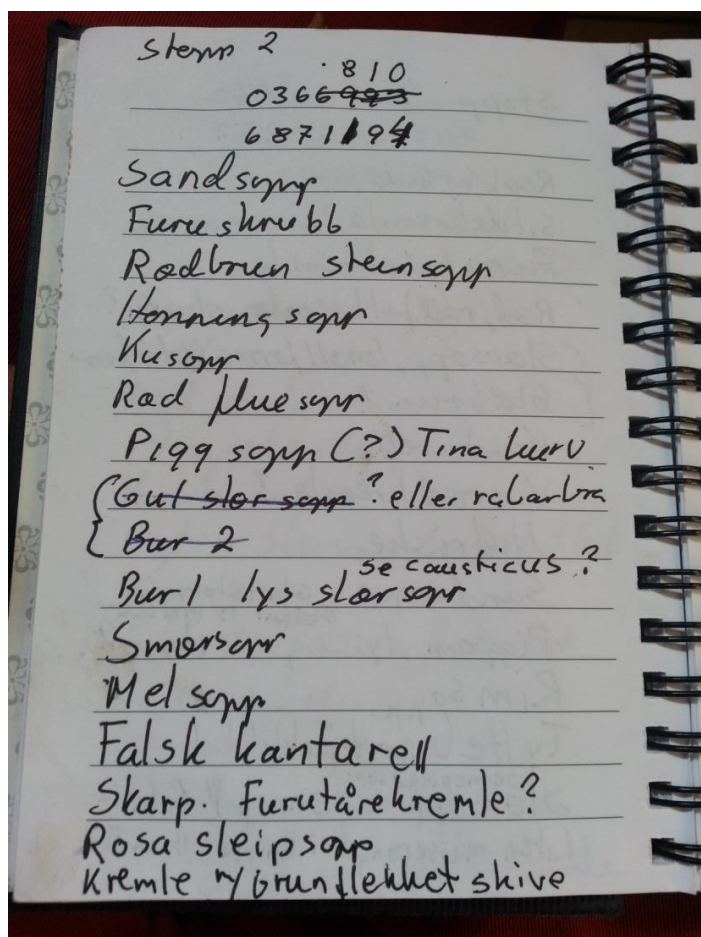 Stopp 2
810
0366993
6871194
Sandsopp
Furuskrubb
Rødbrun steinsopp
Honningsopp
Kusopp
Rød fluesopp
Piggsopp (?) Tina kurv
Gul slørsopp ? eller rabarbra
Bur 2
se causticus ?
Bur 1 lys slørsopp
Smørsopp
Melsopp
Falsk kantarell
Skarp. Furutårekremle?
Rosa sleipsopp
Kremle m/brunflekket skive